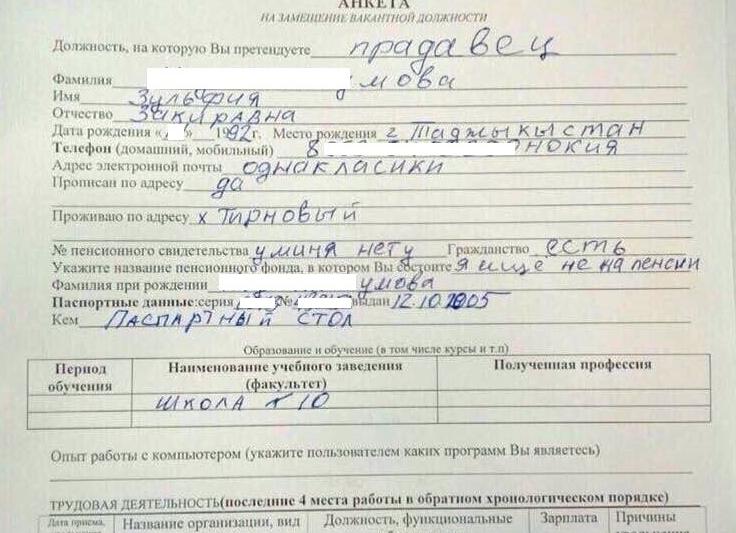 АНКЕТА
НА ЗАМЕЩЕНИЕ ВАКАНТНОЙ ДОЛЖНОСТИ
Должность, на которую Вы претендуете прадавец
Фамилия умова
Имя Зульфия
Отчество Закиравна
Дата рождения « » 1992г. Место рождения г Таджыкыстан
Телефон (домашний, мобильный) 8 нокия
Адрес электронной почты однакласики
Прописан по адресу да
Проживаю по адресу х Тирновый
№ пенсионного свидетельства у миня нету Гражданство есть
Укажите название пенсионного фонда, в котором Вы состоите я ище не на пенсии
Фамилия при рождении умова
Паспортные данные:серия № выдан 12.10.2005
Кем Паспартный стол
Образование и обучение (в том числе курсы и т.п)
Период обучения Наименование учебного заведения (факультет) Полученная профессия
школа 10
Опыт работы с компьютером (укажите пользователем каких программ Вы являетесь)
ТРУДОВАЯ ДЕЯТЕЛЬНОСТЬ(последние 4 места работы в обратном хронологическом порядке)
Дата приема, Название организации, вид Должность, функциональные Зарплата Причины